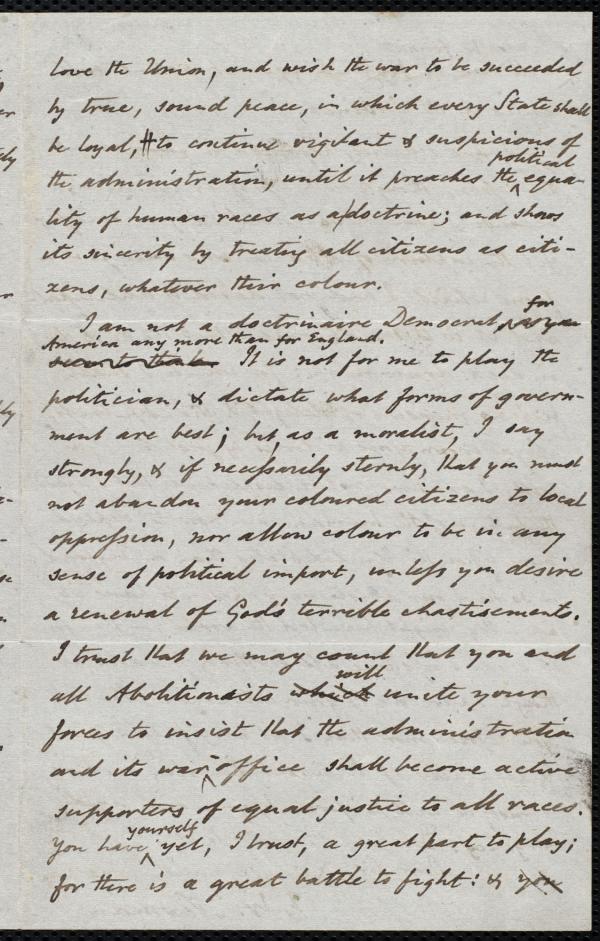 love the Union, and wish the war to be succeeded
by true, sound peace, in which every State shall
be loyal, to continue vigilant & suspicious of
political
the administration, until it preaches the equa-
lity of human races as a doctrine; and shows
its sincerity by treating all citizens as citi-
zens, whatever their colour.
for
I am not a doctrinaire Democrat,
America any more than for England.
seem to think It is not for me to play the
politician, & dictate what forms of govern-
ment are best; but, as a moralist, I say
strongly, & if necessarily sternly, that you must
not abandon your coloured citizens to local
oppression, nor allow colour to be in any
sense of political import, unless you desire
a renewal of God's terrible chastisements.
I trust that we may count that you and
will
all Abolitionists which unite your
forces to insist that the administration
and its war office shall become active
supporters of equal justice to all races.
yourself
You have yet, I trust, a great part to play;
for there is a great battle to fight: & you